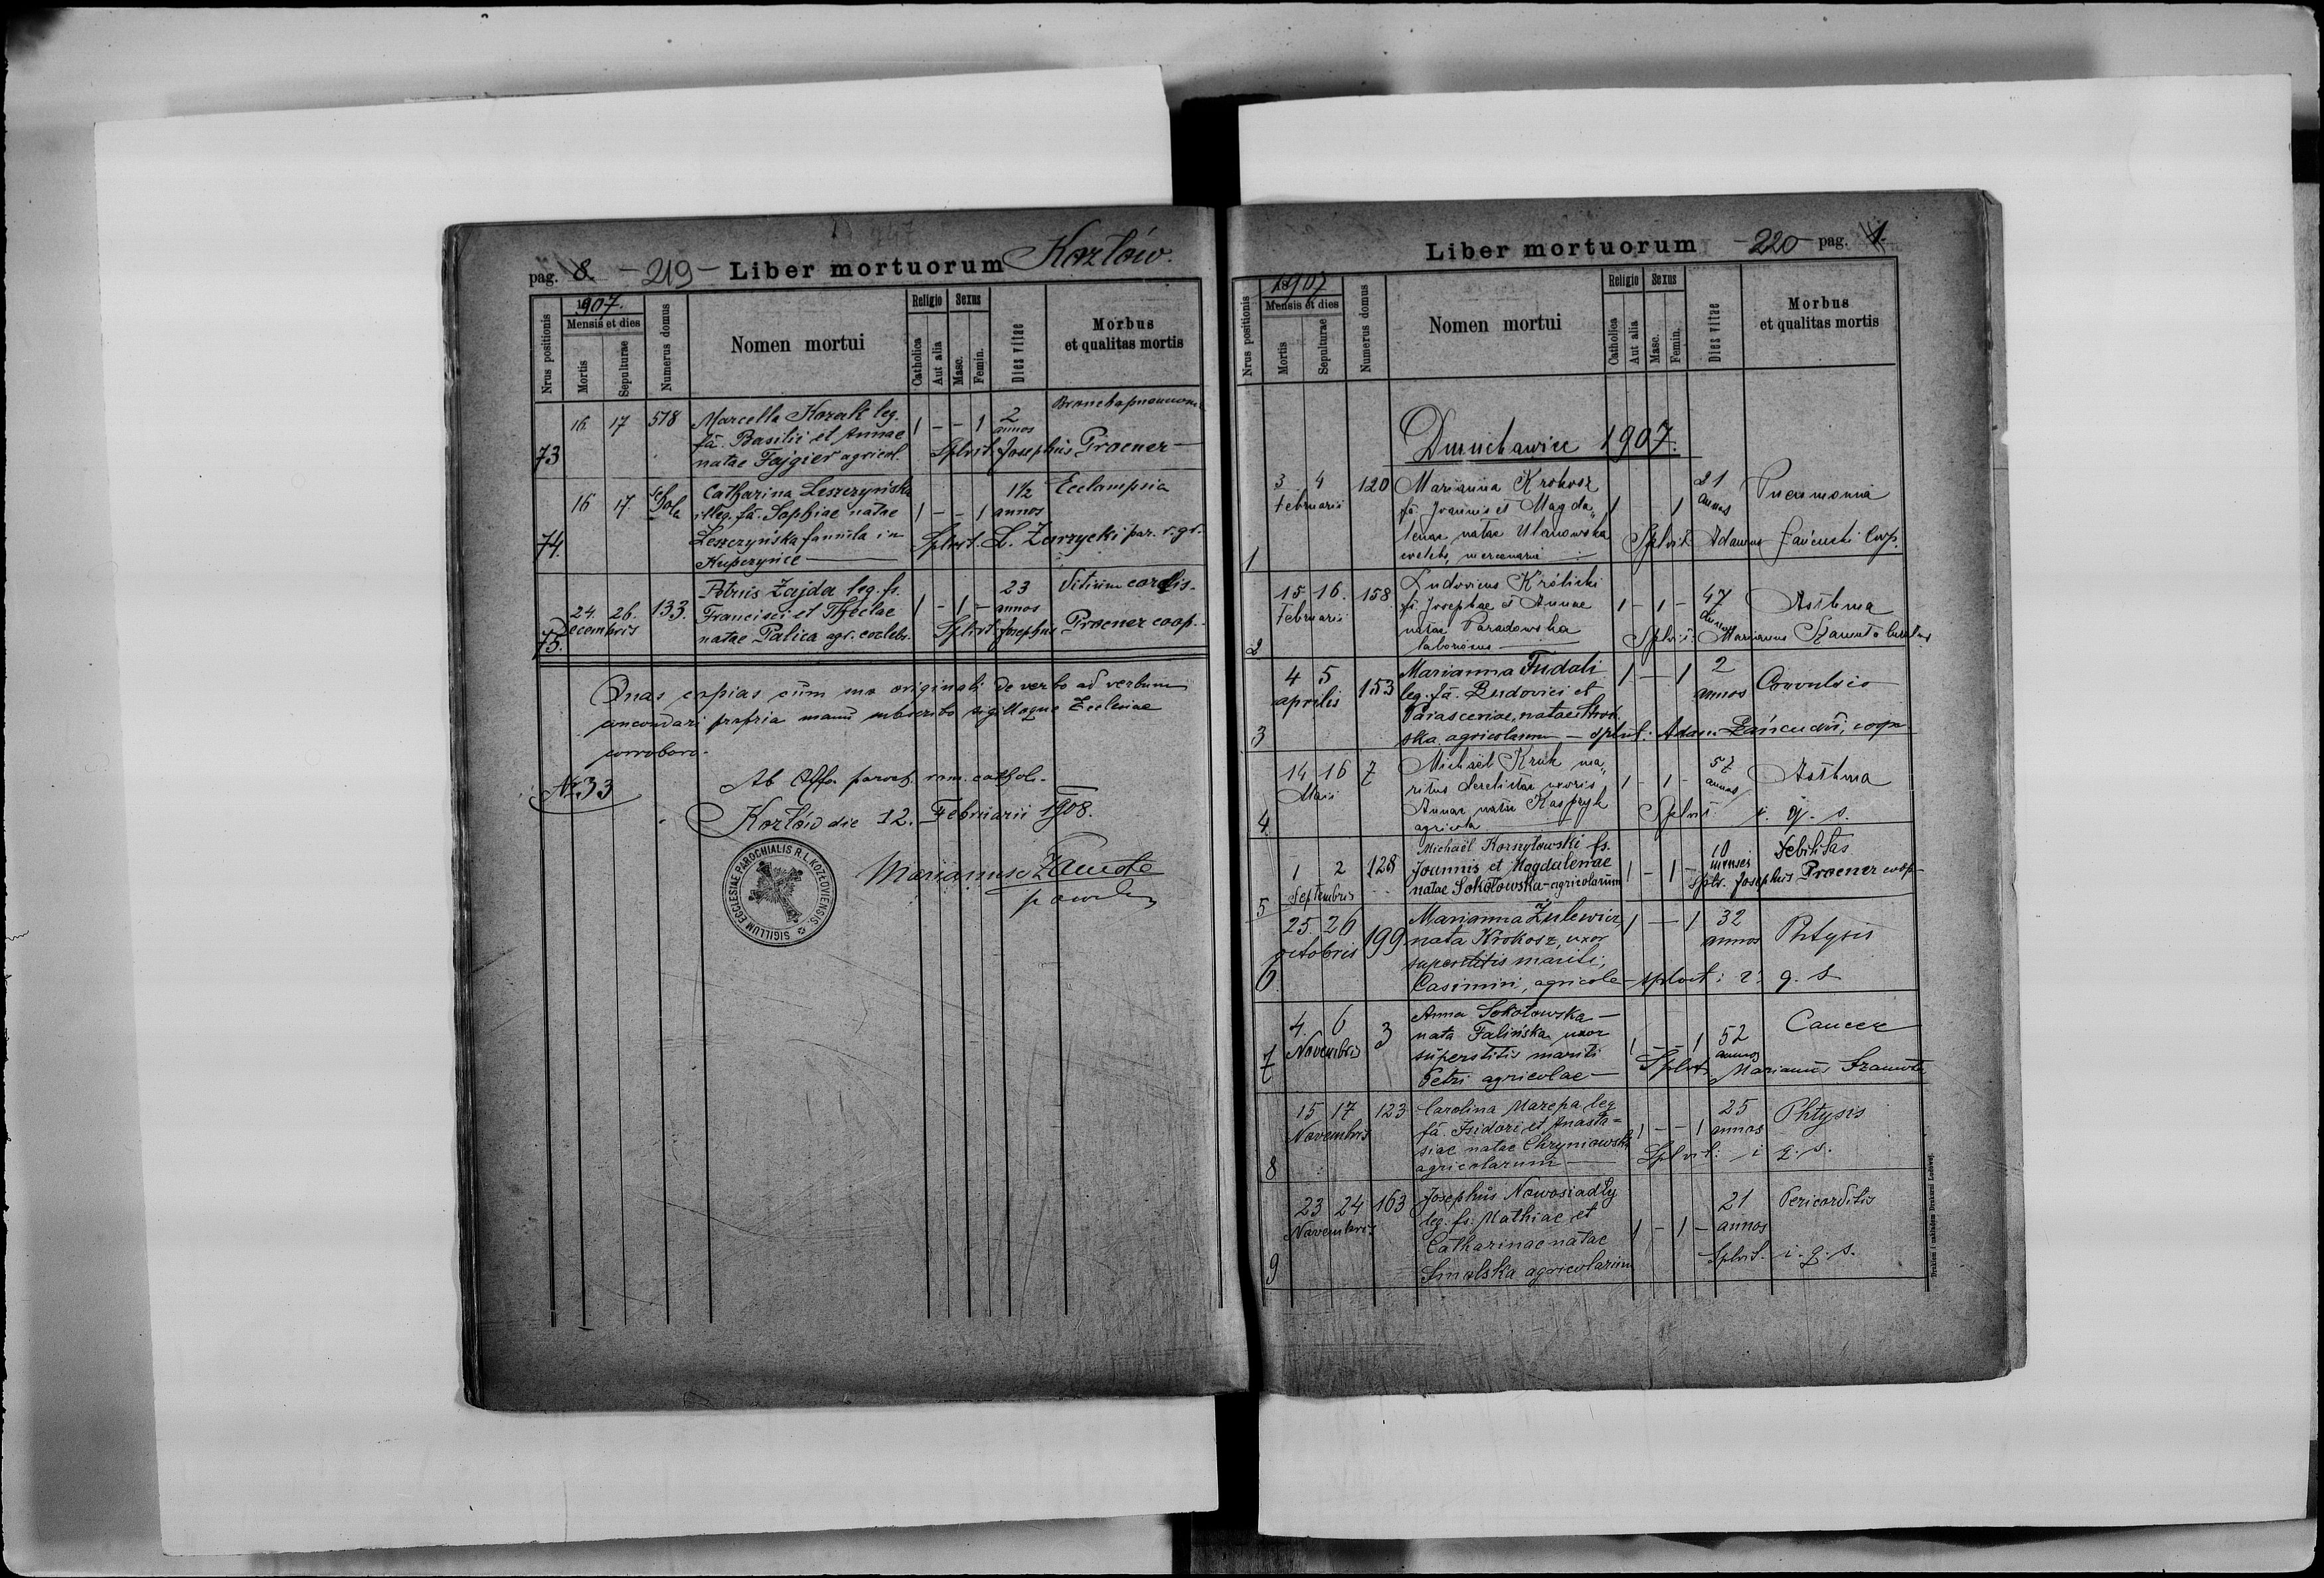 pag. 8. - 219 - Liber mortuorum Kozłów.
1907.
Nrus positionis
Mensis et dies
Mortis
Sepulturae
Numerus domus
Nomen mortui
Religio
Catholica
Aut alia
Sexus
Masc.
Femin.
Dies vitae
Morbus
et qualitas mortis
73 16 17 518 Marcella Kozak leg. 1 - - 1 2 annos
fa. Basilii et Annae
natae Fajgier agricol. Splvit Josephus Procner
74. 16 17. Catharina Leszczyńska 1 - - 1 1½ annos Ecclampsia
illeg. fa. Sophiae natae
Leszczyńska famula in Splvit. L. Zarzycki par. r. gr.
Kupczyńce
75. 24. 26. Decembris 133. Petrus Zajda leg. fs. 1 - 1 - 23 annos Vitium cordis.
Francisci et Theclae
natae Palica agr. coelebs. Splvit Josephus Procner coop.
Quas copias cum suo originali de verbo ad verbum
concordari propria manu subscribo sigilloque Ecclesiae
corroboro.
Nr. 33 Ab Offo paroch. rom. cathol.
Kozłów die 12. Februarii 1908.
SIGILLUM ECCLESIAE PAROCHIALIS R. L. KOZŁOVIENSIS.
Marianus Szamota
Liber mortuorum - 220 - pag. 1.
1907
Nrus positionis
Mensis et dies
Mortis
Sepulturae
Numerus domus
Nomen mortui
Religio
Catholica
Aut alia
Sexus
Masc.
Femin.
Dies vitae
Morbus
et qualitas mortis
Dmuchawice 1907.
1 3 4 Februarii 120 Marianna Krokosz 1 1 21 annos Pneumonia
fa. Joannis et Magda„
lenae natae Ulanowska
coelebs, mercenaria Splvit Adamus Łańcucki Coop.
2 15 16. Februarii 158. Ludovicus Królicki 1 - 1 - 47 annos Asthma
fs. Josephae et Annae
natae Paradowska
laboriosus Splvit: Marianus Szamota Curatus
3 4 5 aprilis 153 Marianna Fudali 1 - 1 2 annos Convulsio
leg. fa. Ludovici et
Parasceviae, natae
ska agricolarum - splvit: Adam Łańcucki, coop
4. 14 16 Maii 7 Michaël Kruk ma„ 1 - 1 - 57 annos Asthma
ritus derelictae uxoris
Annae, natae Kasprzyk
agricola Splvit i. q. s.
5 1 2 Septembris 128 Michaël Kornyłowski fs. 1 - 1 - 10 menses Debilitas
Joannis et Magdalenae
natae Sokołowska - agricolarum Splv. Josephus Procner coop
6. 25. 26 octobris 199 Marianna Żulewicz, 1 - 1 32 annos Phtysis
nata Krokosz, uxor
superstitis mariti,
Casimiri, agricolae - splvit: i. q. s
7 4. 6 Novembris 3 Anna Sokołowska - 1 - - 1 52 annos Cancer
nata Falińska uxor
superstitis mariti
Petri agricolae - Splvit. Marianus Szamota
8 15 17 Novembris 123 Carolina Mazepa leg 1 - - 1 25 annos Phtysis
fa. Isidori et Anasta=
siae natae Chryniowska
agricolarum Splvit: i q. s.
9 23 24 Novembris 163 Josephus Nowosiadły 1 - 1 - 21 annos Pericarditis
leg. fs. Mathiae et
Catharinae natae
Smolska agricolarum Splvit. i. q. s.
Drukiem i nakładem Drukarni Ludowej.